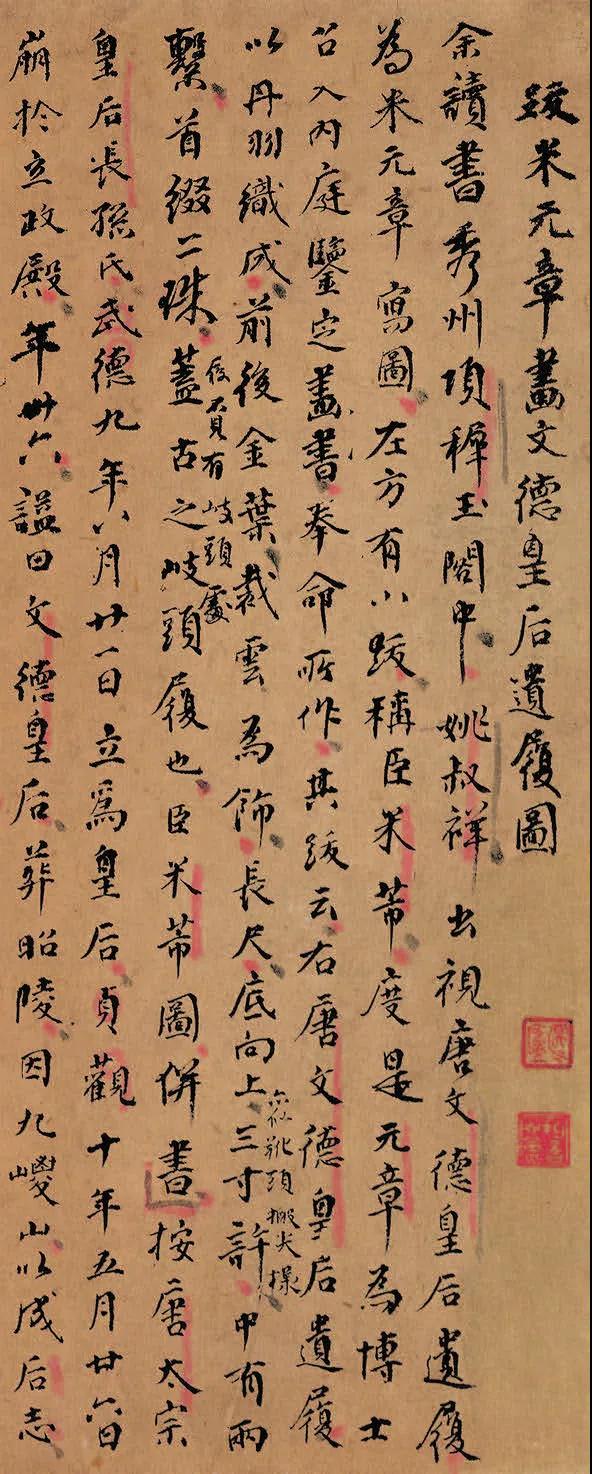 跋米元章畫文德皇后遺履圖
余讀書秀州項穉玉閣中姚叔祥出視唐文德皇后遺履
為米元章寫圖左方有小跋稱臣米芾度是元章為博士
召入内庭鑒定畫書奉命所作其跋云右唐文德皇后遺履
靴頭尖樣
以丹羽織成前後金葉裁雲為飾長尺底向上三寸許中有兩
有岐頭處
繫首綴二珠蓋古之岐頭履也臣米芾圖併書按唐太宗
皇后長孫氏武德九年八月廿一日立爲皇后貞觀十年五月廿六日
崩於立政殿年卅六謚曰文德皇后葬昭陵因九嵕山以成后志